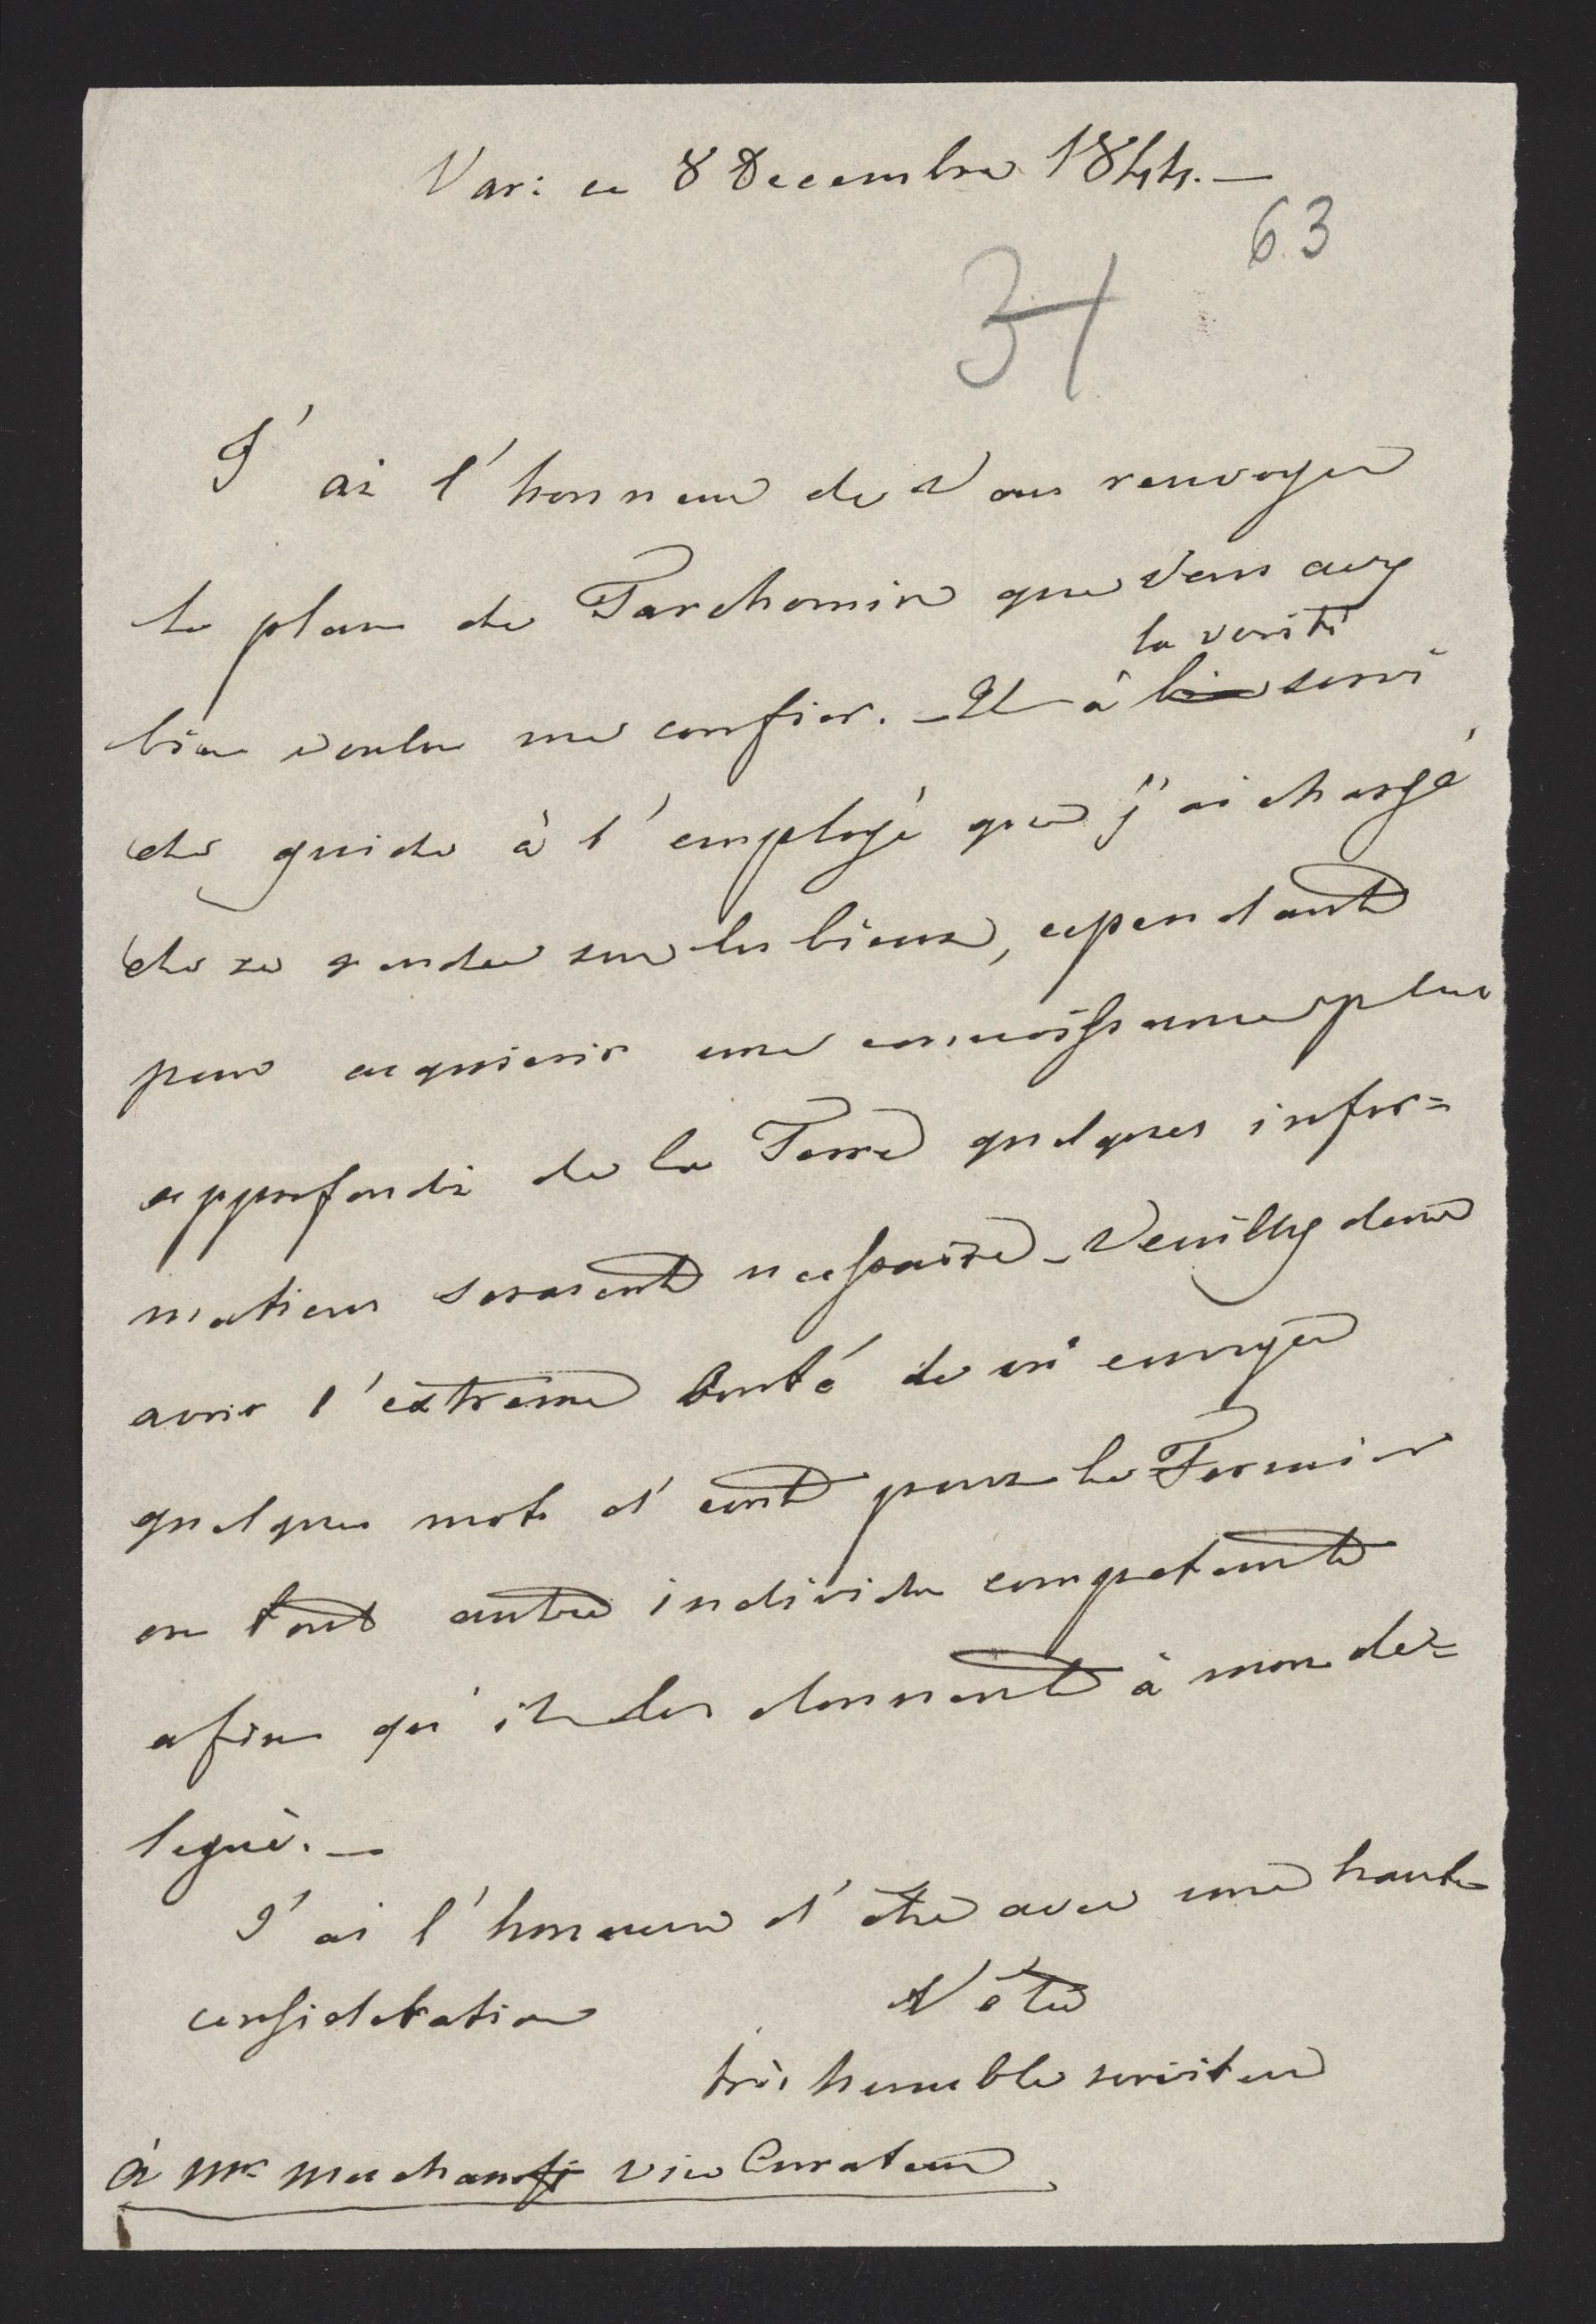 Var: ce 8 Decembre 1844. —
63
34
J'ai l'honneur de Vous renvoyer
le plan de Tarchomin que Vous avez
la verité
bien voulu me confier. — Il à bien servi
de guide à l'employé que j'ai chargé
de se rendre sur les lieux, cependant
pour acquierir une connoissance plus
approfondi de la Terre quelques infor=
mations seraient necessaire — Veuillez donc
avoir l'extreme bonté de m'envoyer
quelques mots d'ecrit pour le Fermier
ou tout autre individu competent
afin qu'il les donnent à mon de=
legué. —
J'ai l'honneur d'être avec une haute
consideration
Vôtre
très humble serviteur
à Mr vice Curateur